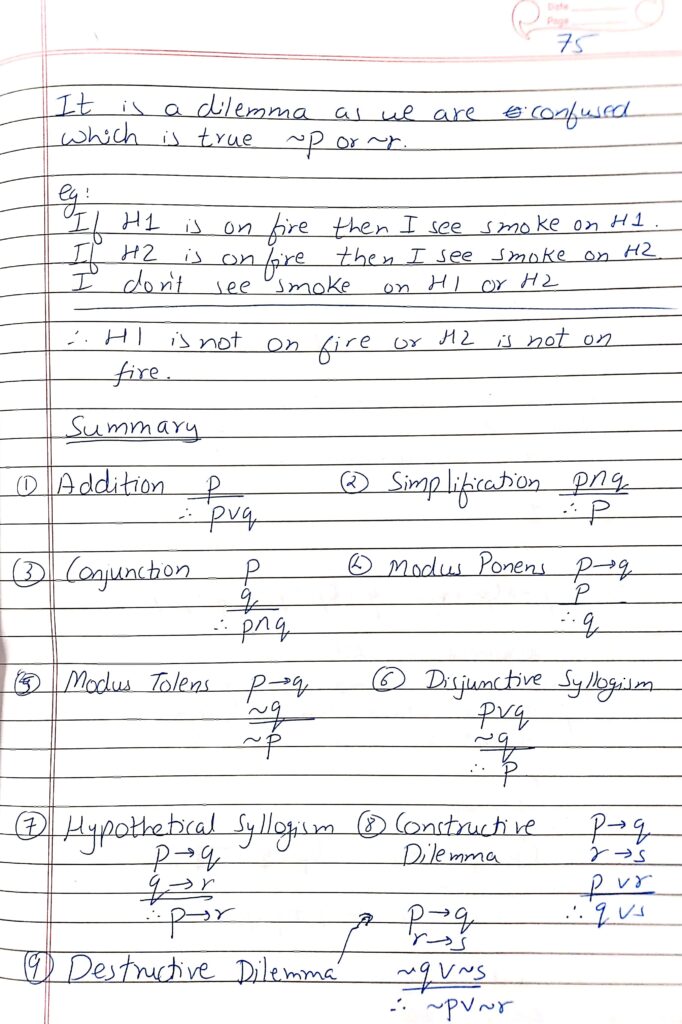 Date
Page
75
It is a dilemma as we are confused
which is true ~p or ~r.
eg:
If H1 is on fire then I see smoke on H1.
If H2 is on fire then I see smoke on H2.
I don't see smoke on H1 or H2
∴ H1 is not on fire or H2 is not on
fire.
Summary
① Addition p
∴ p∨q
② Simplification p∩q
∴ p
③ Conjunction p
q
∴ p∩q
④ Modus Ponens p→q
p
∴ q
⑤ Modus Tolens p→q
~q
~p
⑥ Disjunctive Syllogism
p∨q
~q
∴ p
⑦ Hypothetical Syllogism
p→q
q→r
∴ p→r
⑧ Constructive p→q
Dilemma r→s
p∨r
∴ q∨s
⑨ Destructive Dilemma
p→q
r→s
~q∨~s
∴ ~p∨~r